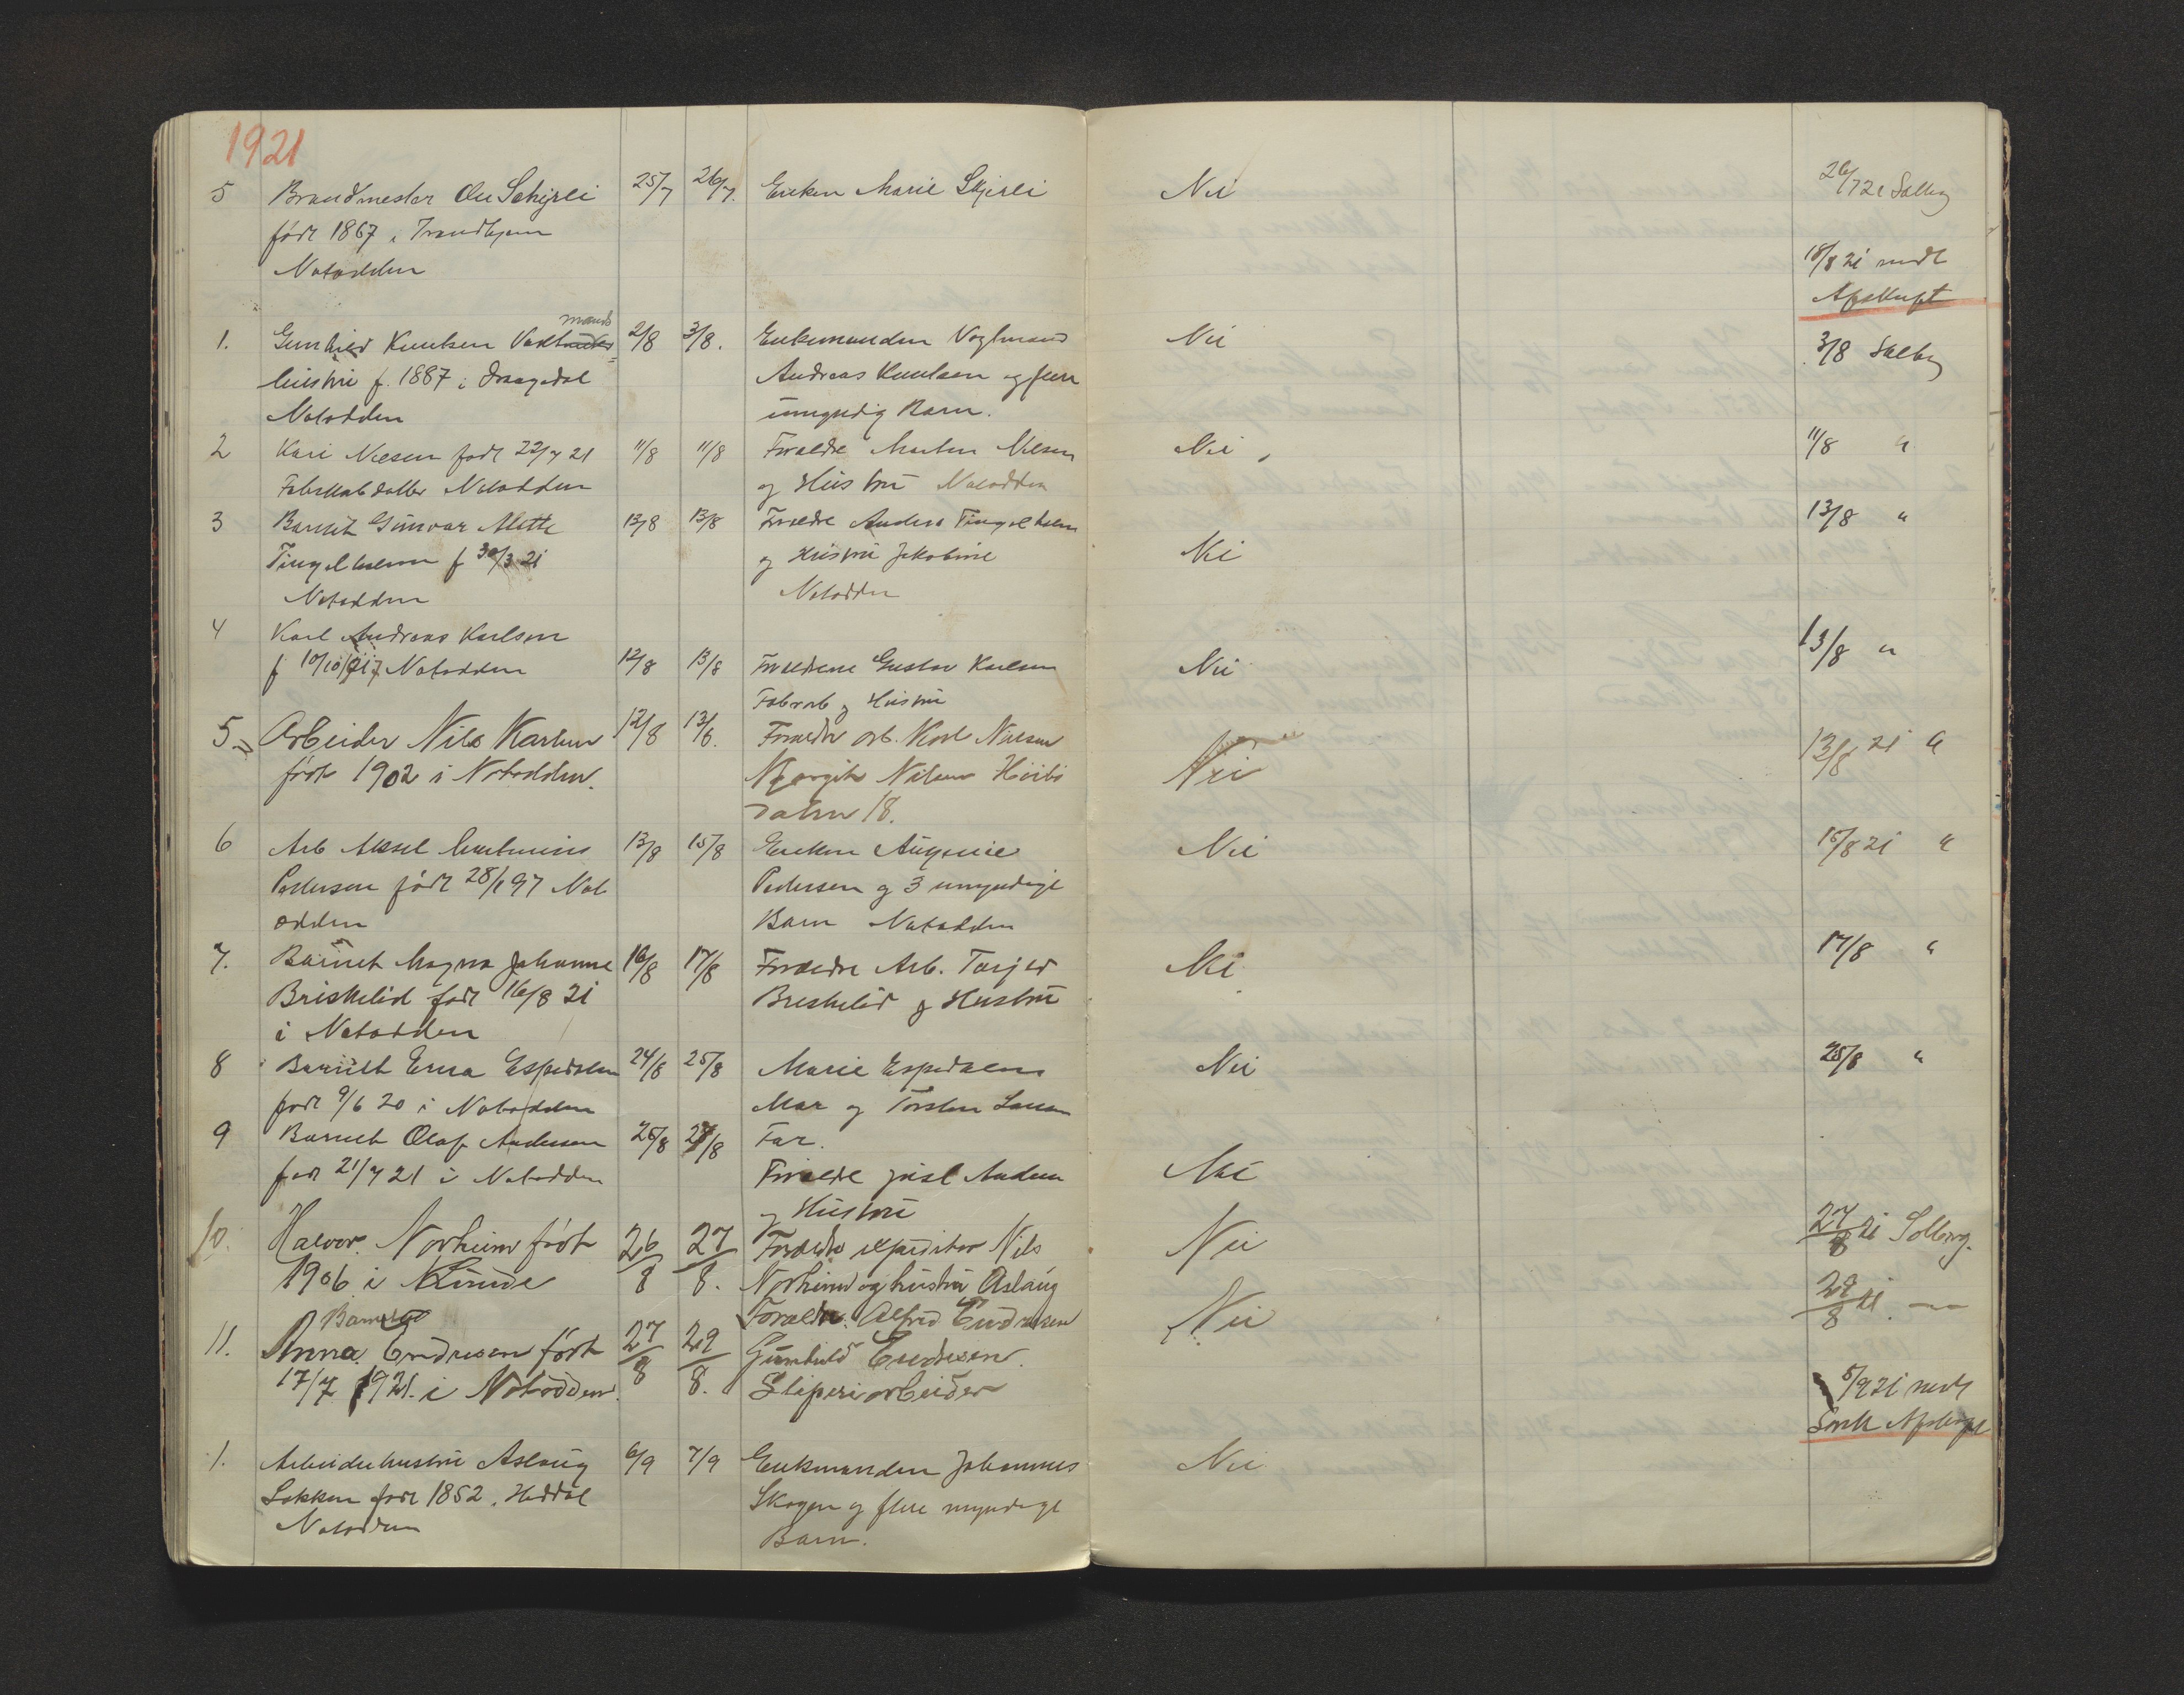 1921
5 Brandmester Ole Schjrli 25/7 26/7. Enken Marie Skjerli Nei 26/7 21 Solberg
født 1867 i Trondhjem
Notodden 18/8 21 sendt
Afskrift
mands
1. Gunhild Knutsen Vakt 2/8 3/8. Enkemanden Vagtmand Nei 3/8 Solberg
hustru f. 1887 i Drangedal Andreas Knutsen og flere
Notodden umyndig Barn.
2 Kari Nilsen født 22/7 21 11/8 11/8 Foreldre Nilsen Nei 11/8 "
Notodden og Hustru Notodden
3 Barnet Gunvar Mette 12/8 13/8 Foreldre Anders Tingelholm 13/8 "
Tingelholm f 30/3 21 og Hustru Jakobine Nei
Notodden Notodden
4 Karl Andreas Karlsen 13/8 "
f 10/10 Notodden 12/8 13/8 Foreldrene Gustav Karlsen Nei
Fabarb og Hustru
5. Arbeider Nils Karlsen 12/8 13/8. Foreldre arb. Karl Nilsen 13/8 21 "
født 1902 i Notodden. Margit Nilsen Nei
dalen 18.
6 Arb Aksel 13/8 15/8 Enken Nei 15/8 21 "
Pedersen født 28/1 97 Not Pedersen og 3 umyndige
odden Barn Notodden
7. Barnet Magna Johanne 16/8 17/8 Foreldre Arb. Tarjei Nei 17/8 "
Briskelid født 16/8 21 Breskelid og Hustru
i Notodden
8 Barnet Erna Espedalen 24/8 25/8 Marie Espedalen Nei 25/8 "
født 9/6 20 i Notodden Mor og Torsten Larsen
9 Barnet Olaf Andersen 26/8 27/8 Far.
født 21/7 21 i Notodden Foreldre Andersen Nei
og Hustru
10. Halvor Norheim født 26/8 27/8. Foreldre expeditør Nils Nei 27/8 21 Solberg.
1906 i Norheim og hustru Aslaug
Barnet Foreldre Alfred Endresen Nei 29/8 21. —
11. Anna Endresen født 27/8 29/8. Gunhild Endresen.
17/7 1921. i Notodden. Sliperiarbeider 5/9 21 sendt
Afskrift
1. Arbeiderhustru Aslaug 6/9 7/9 Enkemanden Johannes Nei
Løkken født 1852 i Heddal Skogen og flere myndige
Notodden Barn.